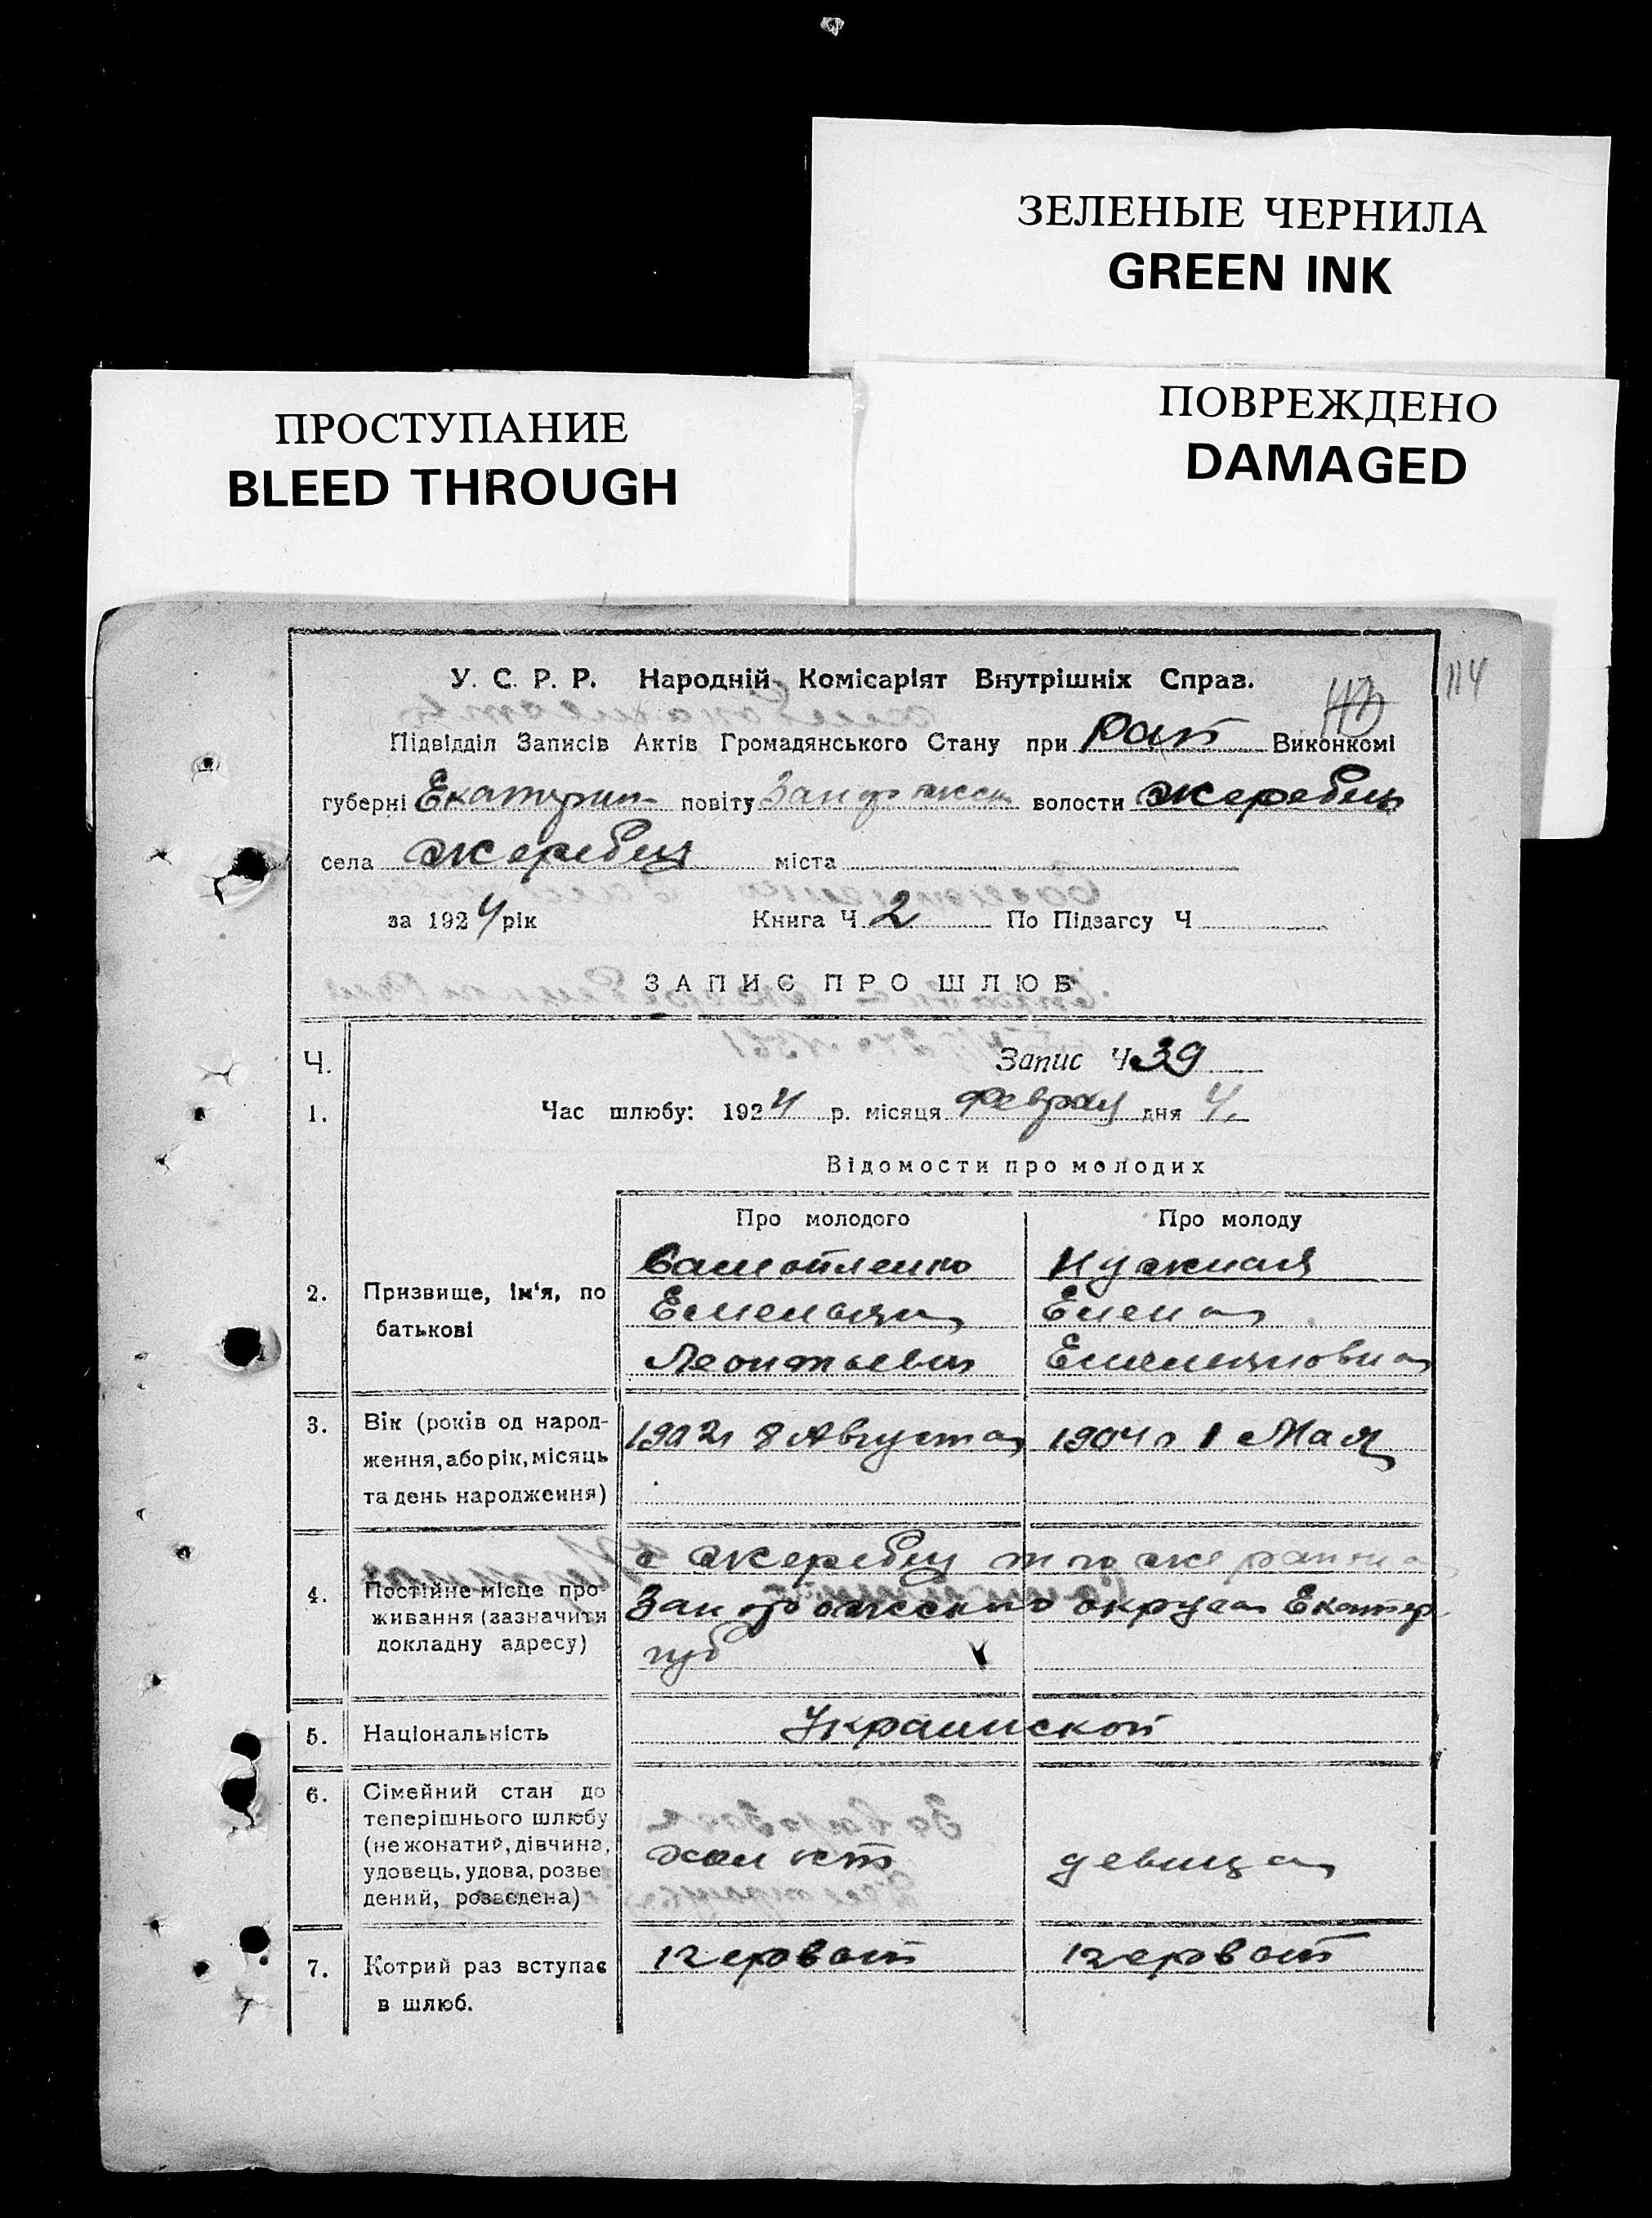 ЗЕЛЕНЫЕ ЧЕРНИЛА
GREEN INK
ПОВРЕЖДЕНО
DAMAGED
ПРОСТУПАНИЕ
BLEED THROUGH
114
У. С. Р. Р. Народній Комісаріят Внутрішніх Справ.
Підвідділ Записів Актів Громадянського Стану при Рай Виконкомі
губерні Екатерин повіту Запорожск волости Жеребец
села Жеребец міста
за 1924 рік Книга Ч 2 По Підзагсу Ч
ЗАПИС ПРО ШЛЮБ
Ч. Запис Ч 39
1. Час шлюбу: 1924 р. місяця Февраля дня 4.
Відомости про молодих
Про молодого Про молоду
2. Призвище, ім'я, по батькові
Самойленко Нужная
Емельян Елена
Леонтьевич Емельяновна
3. Вік (років од народ-
ження, або рік, місяць
та день народження)
1902 г 8 Августа 1904 г 1 Мая
4. Постійне місце про-
живання (зазначити
докладну адресу)
с Жеребец того же района
Запорожского округа Екатер
губ
5. Національність Украинской
6. Сімейний стан до
теперішнього шлюбу
(не жонатий, дівчина,
удовець, удова, розве
дений, розведена)
холост девица
7. Котрий раз вступає
в шлюб.
первый первый